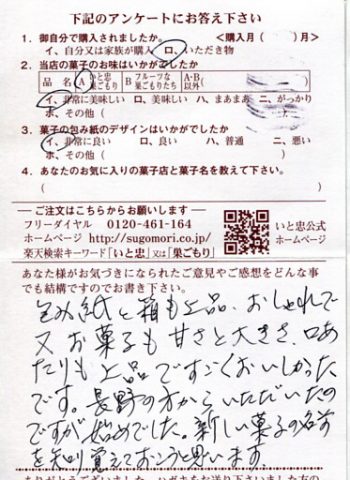 下記のアンケートにお答え下さい
1. 御自分で購入されましたか。 <購入月( )月>
イ、自分又は家族が購入 ロ、いただき物
2. 当店の菓子のお味はいかがでしたか
品 名 A いと忠巣ごもり B フルーツな巣ごもりたち A・B以外( )
イ、非常に美味しい ロ、美味しい ハ、まあまあ ニ、がっかり
ホ、その他( )
3. 菓子の包み紙のデザインはいかがでしたか
イ、非常に良い ロ、良い ハ、普通 ニ、悪い
ホ、その他( )
4. あなたのお気に入りの菓子店と菓子名を教えて下さい。
( )
―ご注文はこちらからお願いします―
フリーダイヤル 0120-461-164
ホームページ http://sugomori.co.jp/
楽天検索キーワード「いと忠」又は「巣ごもり」
いと忠公式
ホームページ
あなた様がお気づきになられたご意見やご感想をどんな事
でも結構ですのでお書き下さい。
包み紙と箱も上品、おしゃれで
又お菓子も甘さと大きさ、口あ
たりも上品ですごくおいしかった
です。長野の方からいただいたの
ですが始めでした。新しい菓子の名前
を知り覚えておこうと思います。
ありがとうございました。ハガキをお送り下さいました方の